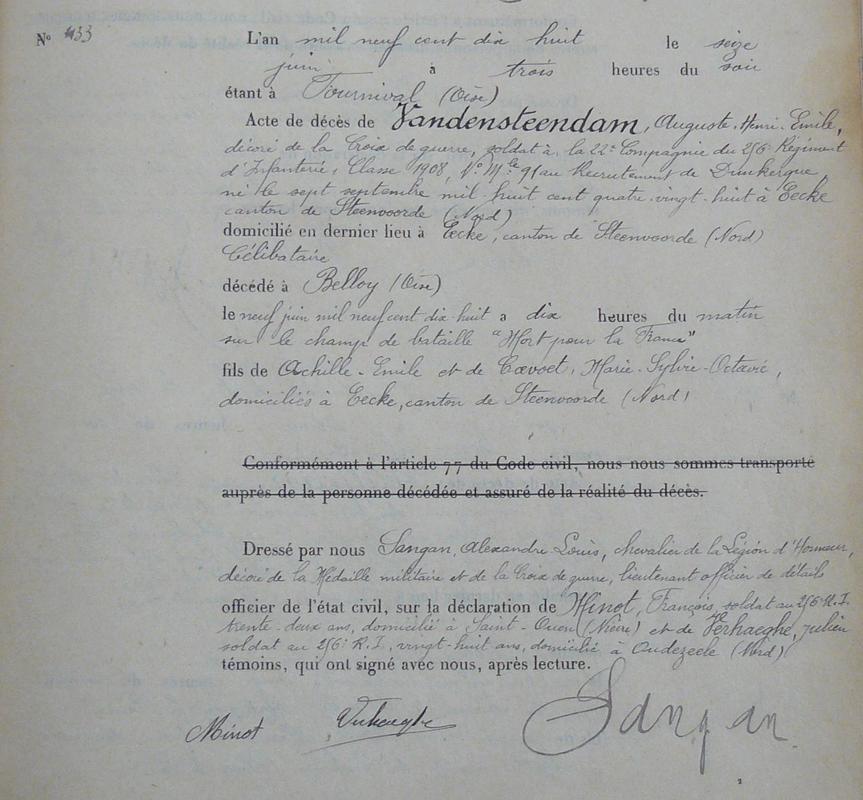 N° 433
L'an mil neuf cent dix huit le seize
juin à trois heures du soir
étant à Fournival (Oise)
Acte de décès de Vandensteendam, Auguste-Henri-Emile,
décoré de la Croix de guerre, soldat à la 22e Compagnie du 256e Régiment
d'Infanterie, Classe 1908, N° Mle au Recrutement de Dunkerque,
né le sept septembre mil huit cent quatre-vingt-huit à Eecke
canton de Steenvoorde (Nord)
domicilié en dernier lieu à Eecke, canton de Steenvoorde (Nord)
Célibataire
décédé à Belloy (Oise)
le neuf juin mil neuf cent dix huit a dix heures du matin
sur le champ de bataille "Mort pour la France"
fils de Achille-Emile et de Coevoet, Marie-Sylvie-Octavie,
domiciliés à Eecke, canton de Steenvoorde (Nord)
Conformément à l'article 77 du Code civil, nous nous sommes transporté
auprès de la personne décédée et assuré de la réalité du décès.
Dressé par nous Sangan, Alexandre Louis, chevalier de la Légion d'Honneur,
décoré de la Médaille militaire et de la Croix de guerre, lieutenant officier de détails
officier de l'état civil, sur la déclaration de Minot, François, soldat au 256e R.I.
trente-deux ans, domicilié à Saint-Ouen (Nièvre) et de Verhaeghe, Julien
soldat au 256e R.I., vingt-huit ans, domicilié à Oudezeele (Nord)
témoins, qui ont signé avec nous, après lecture.
Minot Verhaeghe Sangan